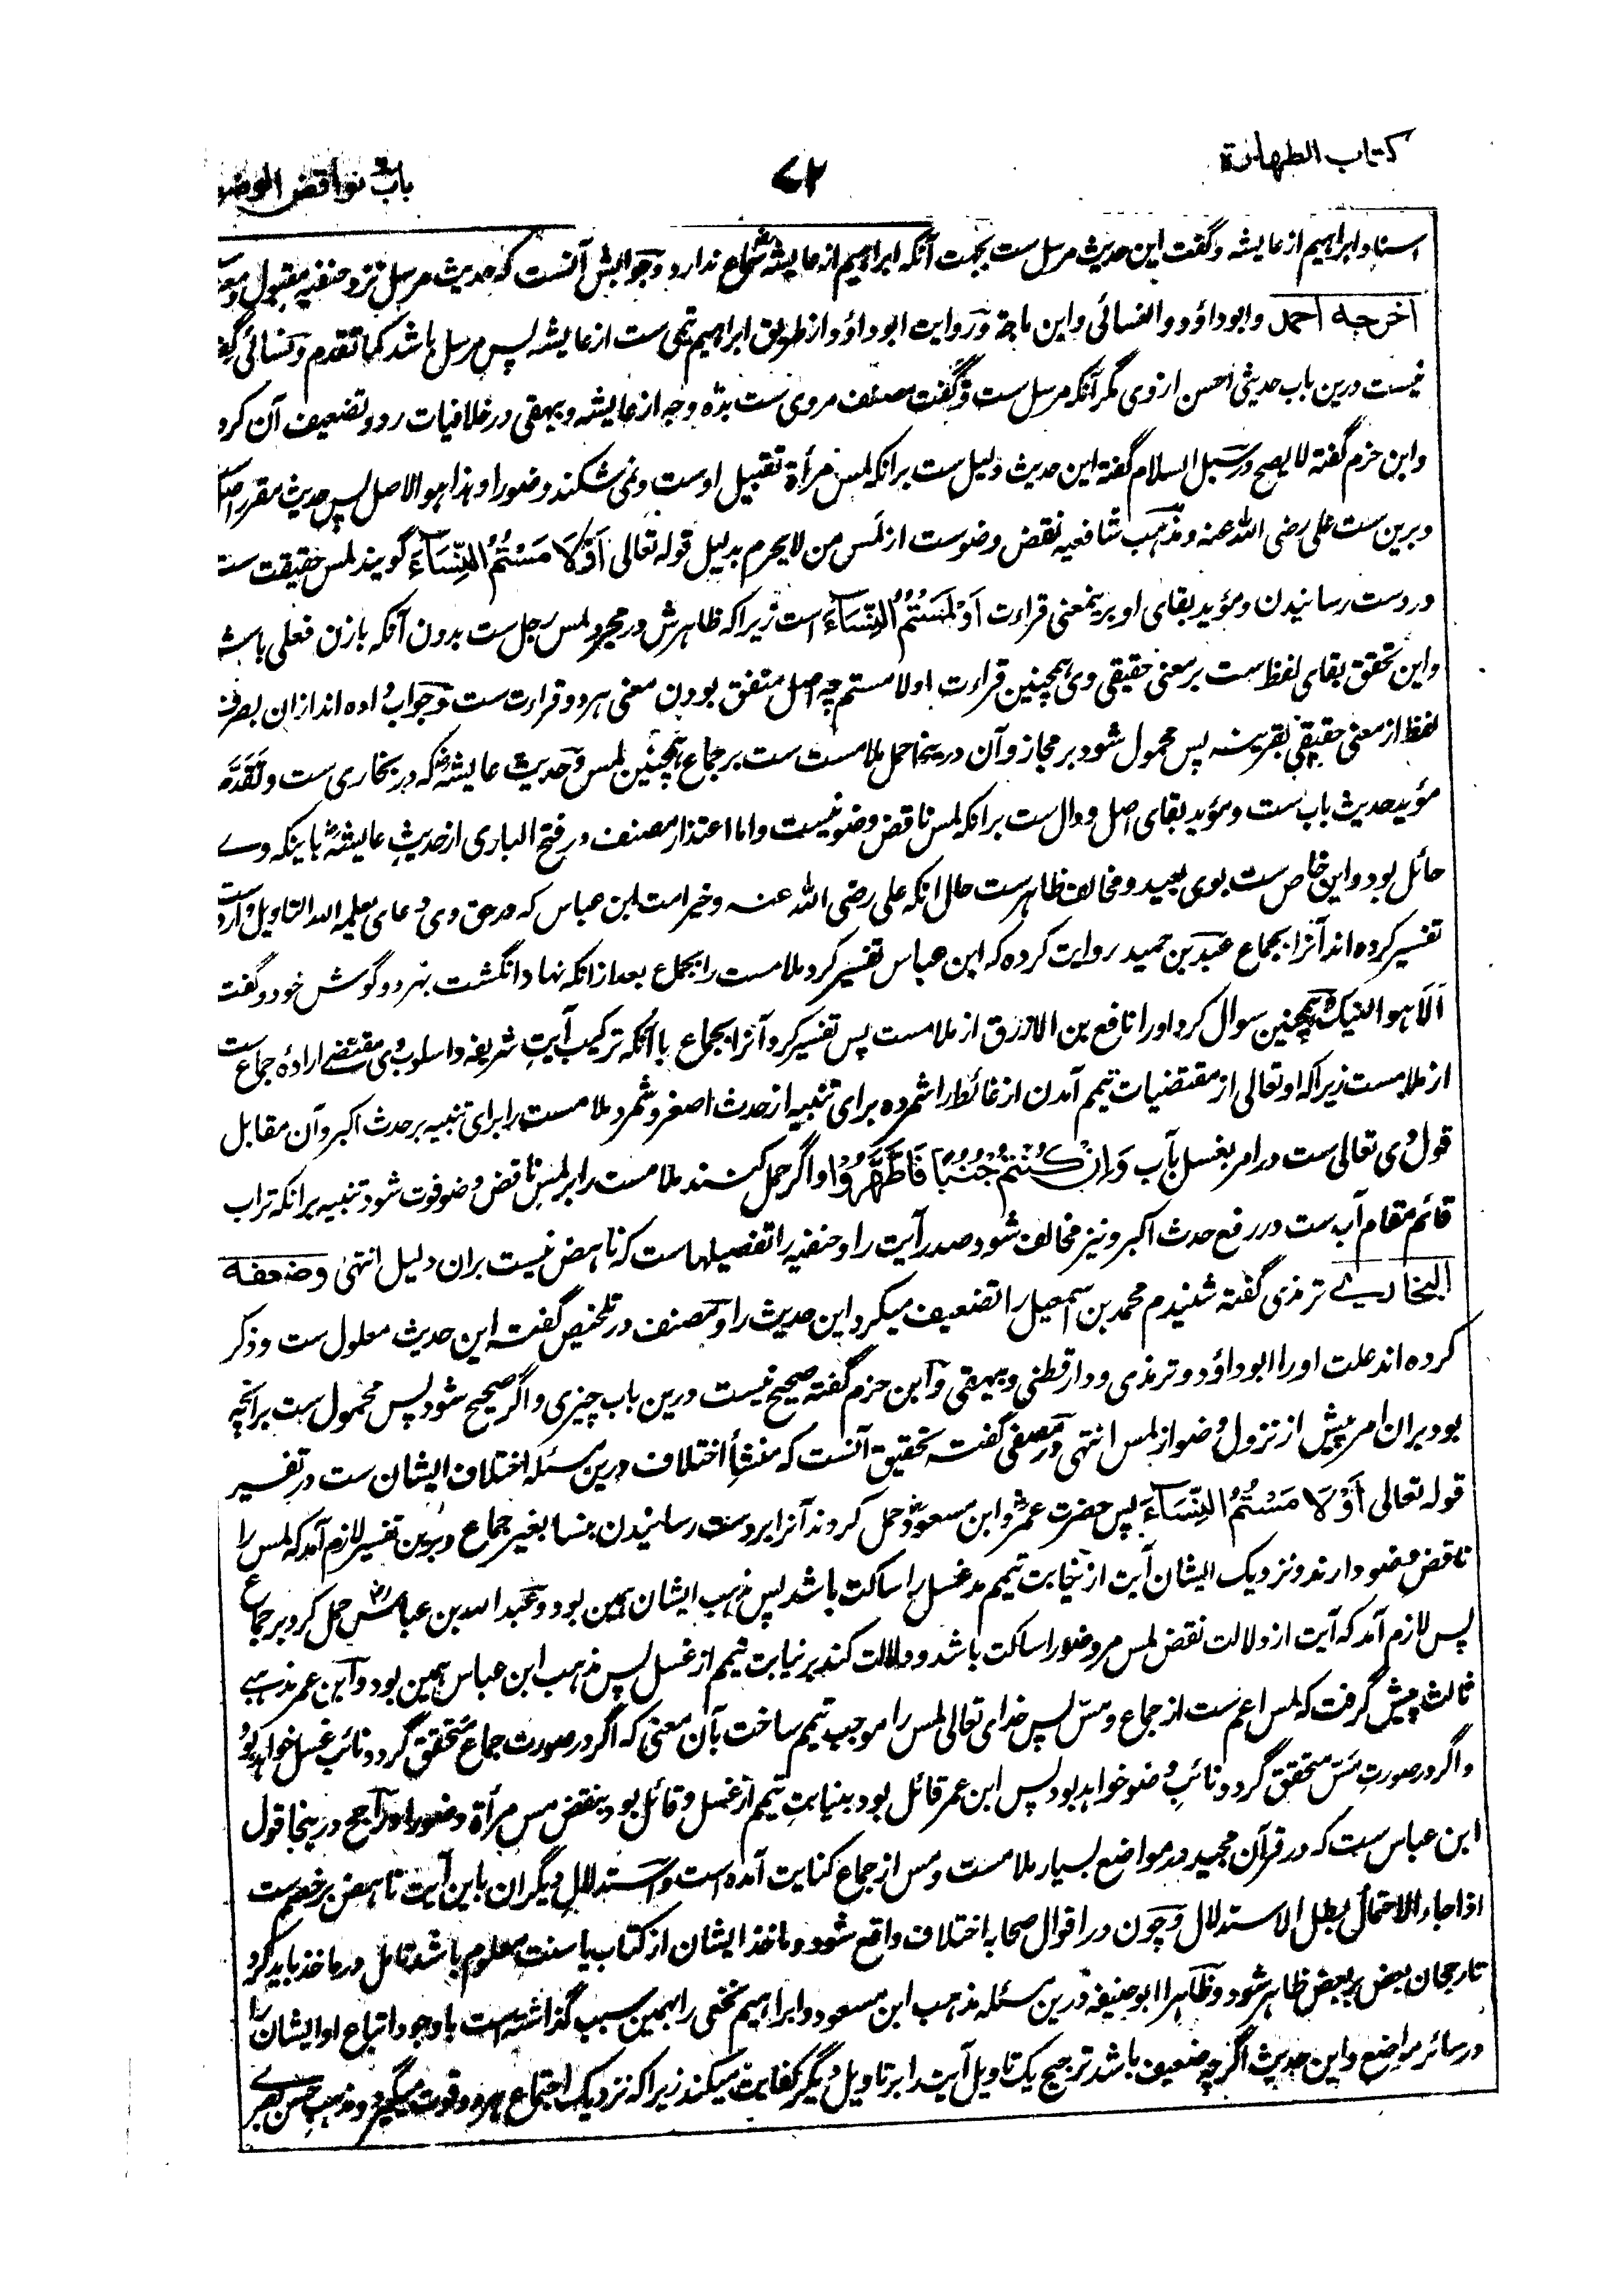 کتاب الطهارة
۷۲
باب نواقض الوضو
اسناد ابراہیم از عایشه وگفت این حدیث مرسل ست بجہت آنکه ابراہیم از عایشه سماع ندارد وجوابش آنست که حدیث مرسل نزد حنفیه مقبول
اخرجه احمد وابوداؤد والنسائی وابن ماجة ودر روایت ابوداؤد از طریق ابراہیم تیمی ست از عایشه پس مرسل باشد کما تقدم ونسائی
نیست درین باب حدیثی احسن از وی مگر آنکه مرسل ست وگفت مصنف مروی ست بده وجه از عایشه وبیهقی در خلافیات رد وتضعیف آن کرد
وابن حزم گفته لا یصح ودر سبل السلام گفته این حدیث دلیل ست برانکه لمس مرأة وتقبیل اوست ونمی شکند وضو را وہذا ہو الاصل پس حدیث مقرر
وبرین ست علی رضی الله عنه ومذہب شافعیه نقض وضوست از لمس من لا یحرم بدلیل قوله تعالی اَوْ لَامَسْتُمُ النِّسَاءَ گویند لمس حقیقت ست
در دست رسانیدن ومؤید بقای او برین معنی قراءت اَوْ لَمَسْتُمُ النِّسَاءَ است زیرا که ظاہرش در مجرد لمس رجل ست بدون آنکه با زن فعلی باشد
واین تحقق بقای لفظ ست بر معنی حقیقی وی ہمچنین قراءت او لامستم چه اصل متفق بودن معنی ہر دو قراءت ست وجواب داده اند ازان بصرف
لفظ از معنی حقیقی بقرینه پس محمول شود بر مجاز وآن درینجا حمل ملامست ست بر جماع ہمچنین لمس وحدیث عایشه که در بخاری ست وتقدم
مؤید حدیث باب ست ومؤید بقای اصل ودال ست برانکه لمس ناقض وضو نیست واما اعتذار مصنف در فتح الباری از حدیث عایشه باینکه وے
حائل بود واین خاص ست بوی بعید ومخالف ظاہر ست حال آنکه علی رضی الله عنه وخیر امت ابن عباس که در حق وی دعای علمه الله التاویل وارد ست
تفسیر کرده اند آنرا بجماع عبد بن حمید روایت کرده که ابن عباس تفسیر کرد ملامست را بجماع بعد ازانکه نهاد انگشت بہر دو گوش خود وگفت
اَلَا هو النیک وہمچنین سوال کرد او را نافع بن الازرق از ملامست پس تفسیر کرد آنرا بجماع با آنکه ترکیب آیت شریفه واسلوب وی مقتضے ارادهٔ جماع ست
از ملامست زیرا که او تعالی از مقتضیات تیمم آمدن از غائط را شمرده برای تنبیه از حدث اصغر وشمرد ملامست را برای تنبیه بر حدث اکبر وآن مقابل
قول وی تعالی ست در امر بغسل بآب وَاِنْ كُنْتُمْ جُنُبًا فَاطَّهَّرُوْا واگر حمل کنند ملامست را بر لمس ناقض وضو فوت شود تنبیه برانکه تراب
قائم مقام آب ست در رفع حدث اکبر ونیز مخالف شود صدر آیت را وحنفیه را تفصیلهاست که ناہض نیست بران دلیل انتهی وضعفه
البخاری ترمذی گفته شنیدم محمد بن اسمعیل را تضعیف میکرد این حدیث را ومصنف در تلخیص گفته این حدیث معلول ست وذکر
کرده اند علت او را ابوداؤد وترمذی ودارقطنی وبیهقی وابن حزم گفته صحیح نیست درین باب چیزی واگر صحیح شود پس محمول ست برانچه
بود بران امر پیش از نزول وضو از لمس انتهی ودر مصفی گفته تحقیق آنست که منشأ اختلاف درین مسئله اختلاف ایشان ست در تفسیر
قوله تعالی اَوْ لَامَسْتُمُ النِّسَاءَ پس حضرت عمر وابن مسعود حمل کردند آنرا بر دست رسانیدن بنسا بغیر جماع وبرین تفسیر لازم آمد که لمس را
ناقض وضو دارند ونزدیک ایشان آیت از نیابت تیمم مر غسل را ساکت باشد پس مذہب ایشان ہمین بود وعبد الله بن عباس حمل کرد بر جماع
پس لازم آمد که آیت از دلالت نقض لمس مر وضو را ساکت باشد ودلالت کند بر نیابت تیمم از غسل پس مذہب ابن عباس ہمین بود وابن عمر مذہبے
ثالث پیش گرفت که لمس اعم ست از جماع ومس پس خدای تعالی لمس را موجب تیمم ساخت بآن معنی که اگر در صورت جماع متحقق گردد نائب غسل خواہد بود
واگر در صورت مس متحقق گردد نائب وضو خواہد بود پس ابن عمر قائل بود بنیابت تیمم از غسل وقائل بود بنقض مس مرأة وضو را وراجح درینجا قول
ابن عباس ست که در قرآن مجید در مواضع بسیار ملامست ومس از جماع کنایت آمده است واستدلال دیگران باین آیت ناہض بر خصم ست
اذا جاء الاحتمال بطل الاستدلال وچون در اقوال صحابه اختلاف واقع شود وماخذ ایشان از کتاب یا سنت معلوم باشد تامل در ماخذ باید کرد
تا رجحان بعض بر بعض ظاہر شود وظاہرا ابوحنیفه درین مسئله مذہب ابن مسعود وابراہیم نخعی را بہمین سبب گذاشته ست با وجود اتباع او ایشان را
در سائر مواضع واین حدیث اگر چه ضعیف باشد ترجیح یک تاویل آیت را بر تاویل دیگر کفایت میکند زیرا که نزدیک اجتماع ہر دو قوت میگیرد ومذہب حسن بصرے